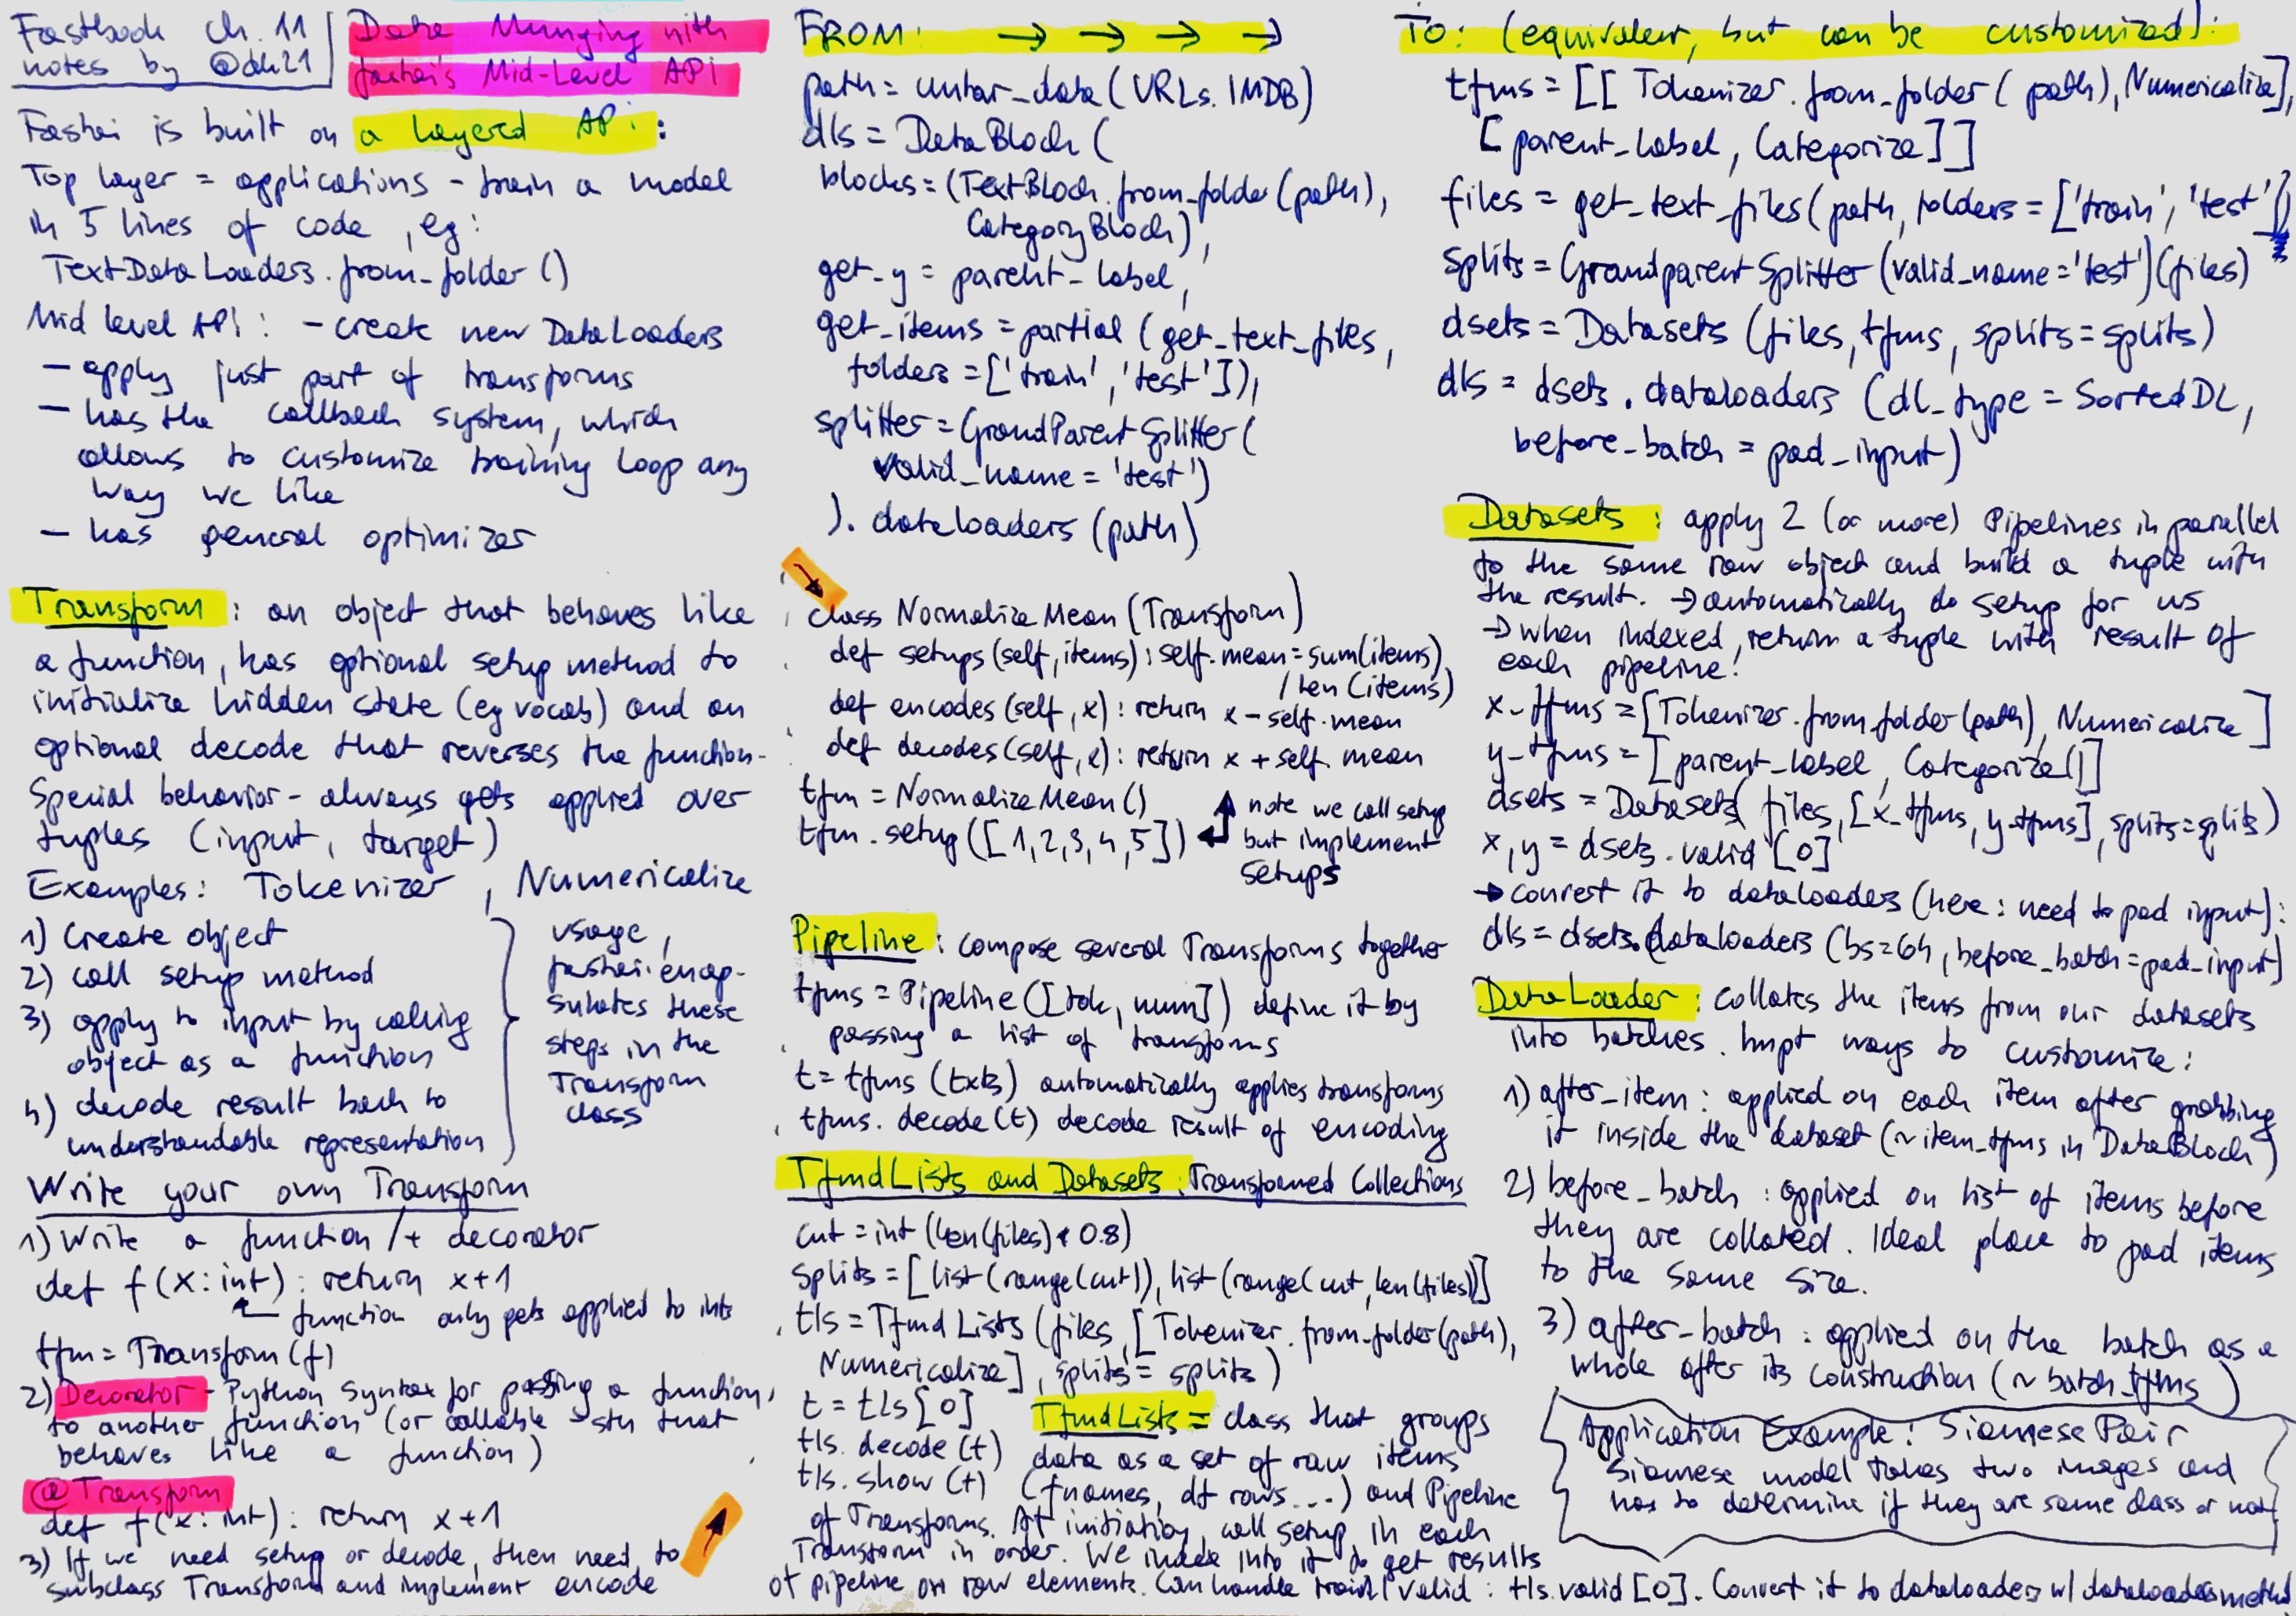 Fastbook ch. 11
notes by @dh21
Data Munging with
fastai's Mid-Level API
Fastai is built on a layered API:
Top layer = applications - train a model
in 5 lines of code, eg:
TextDataLoaders.from_folder()
Mid level API: - create new DataLoaders
- apply just part of transforms
- has the callback system, which
allows to customize training loop any
way we like
- has general optimizer
Transform: an object that behaves like
a function, has optional setup method to
initialize hidden state (eg vocab) and an
optional decode that reverses the function.
Special behavior - always gets applied over
tuples (input, target)
Examples: Tokenizer, Numericalize
1) Create object
2) call setup method
3) apply to input by calling
object as a function
4) decode result back to
understandable representation
usage,
fastai encap-
sulates these
steps in the
Transform
class
Write your own Transform
1) Write a function /+ decorator
def f(x:int): return x+1
function only gets applied to ints
tfm = Transform(f)
2) Decorator - Python syntax for passing a function,
to another function (or callable - sth that
behaves like a function)
@Transform
def f(x:int): return x+1
3) If we need setup or decode, then need to
subclass Transform and implement encode
FROM: → → → →
path = untar_data(URLs.IMDB)
dls = DataBlock(
blocks=(TextBlock.from_folder(path),
CategoryBlock),
get_y = parent_label,
get_items = partial(get_text_files,
folders=['train','test']),
splitter=GrandParentSplitter(
valid_name='test')
).dataloaders(path)
class NormalizeMean(Transform)
def setups(self,items): self.mean=sum(items)
/len(items)
def encodes(self,x): return x-self.mean
def decodes(self,x): return x+self.mean
tfm = NormalizeMean()
tfm.setup([1,2,3,4,5])
note we call setup
but implement
setups
Pipeline: compose several Transforms together
tfms = Pipeline([tok, num]) define it by
passing a list of transforms
t = tfms(txts) automatically applies transforms
tfms.decode(t) decode result of encoding
TfmdLists and Datasets: Transformed Collections
cut = int(len(files)*0.8)
splits = [list(range(cut)), list(range(cut,len(files))]
tls = TfmdLists(files, [Tokenizer.from_folder(path),
Numericalize], splits = splits)
t = tls[0]
tls.decode(t)
tls.show(t)
TfmdLists = class that groups
data as a set of raw items
(fnames, df rows...) and Pipeline
of Transforms. At initiation, call setup in each
Transform in order. We index into it to get results
of pipeline on raw elements. Can handle train/valid: tls.valid[0]. Convert it to dataloaders w/ dataloaders method
TO: (equivalent, but can be customized):
tfms = [[Tokenizer.from_folder(path), Numericalize],
[parent_label, Categorize]]
files = get_text_files(path, folders=['train','test'])
splits = GrandparentSplitter(valid_name='test')(files)
dsets = Datasets(files, tfms, splits=splits)
dls = dsets.dataloaders(dl_type = SortedDL,
before_batch = pad_input)
Datasets: apply 2 (or more) Pipelines in parallel
to the same raw object and build a tuple with
the result. → automatically do setup for us
→ when indexed, return a tuple with result of
each pipeline!
x_tfms = [Tokenizer.from_folder(path), Numericalize]
y_tfms = [parent_label, Categorize()]
dsets = Datasets(files, [x_tfms, y_tfms], splits=splits)
x,y = dsets.valid[0]
→ convert it to dataloaders (here: need to pad input):
dls = dsets.dataloaders(bs=64, before_batch=pad_input)
DataLoader: collates the items from our datasets
into batches. Impt ways to customize:
1) after_item: applied on each item after grabbing
it inside the dataset (~item_tfms in DataBlock)
2) before_batch: applied on list of items before
they are collated. Ideal place to pad items
to the same size.
3) after_batch: applied on the batch as a
whole after its construction (~batch_tfms)
Application Example: Siamese Pair
Siamese model takes two images and
has to determine if they are same class or not